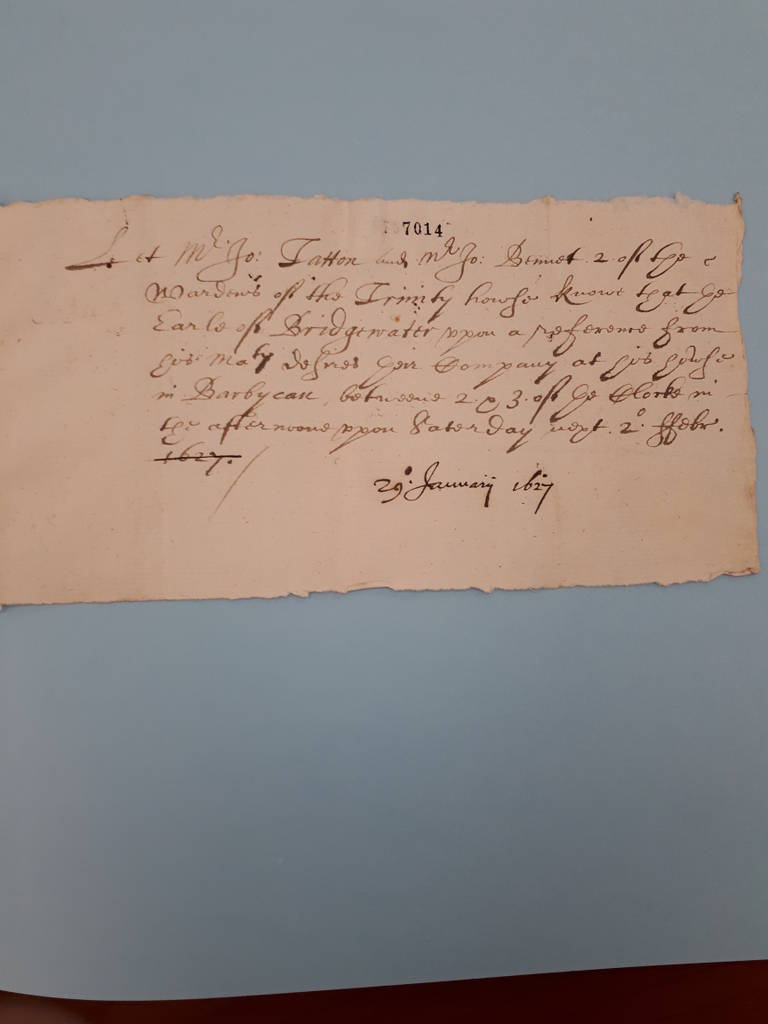 7014
Let Mr. Jo: Tatton and Mr Jo: Bennet . 2 . of the
Wardens of the Trinity howse knowe that the
Earle of Bridgewater vpon a reference from
his Maty desires their Company at his howse
in Barbycan, betweene 2 & 3. of the Clocke in
the afternoone vpon Saterday next . 2o. ffebr.
1627.
29o. January 1627